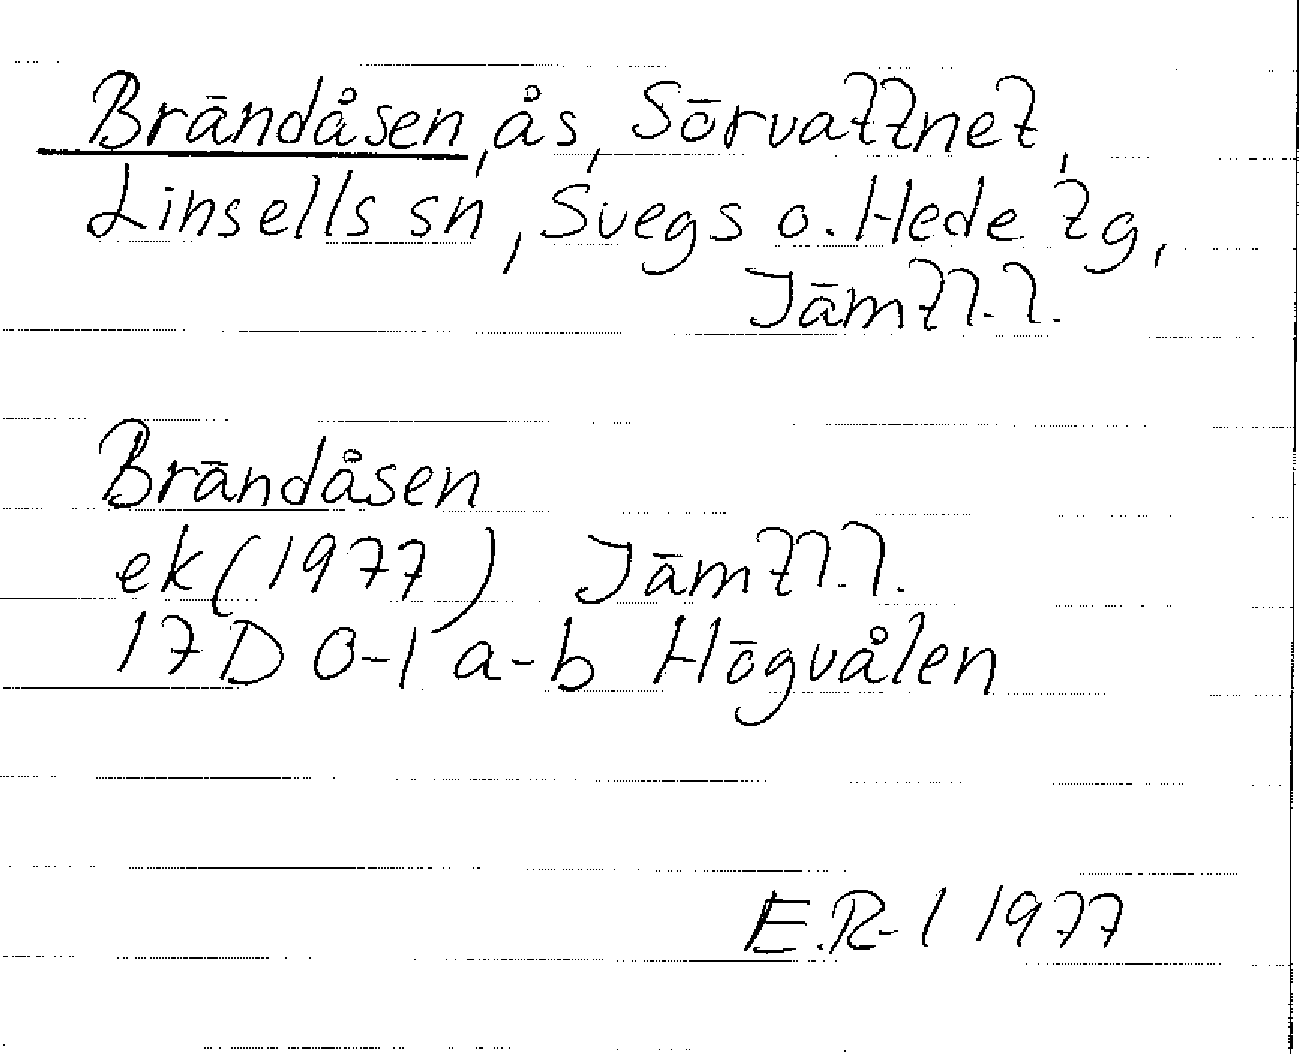 Brändåsen, ås, Sörvattnet,
Linsells sn, Svegs o. Hede tg,
Jämtl.l.
Brändåsen
ek (1977) Jämtl.l.
17D 0-1 a-b Högvålen
E.R-l 1977